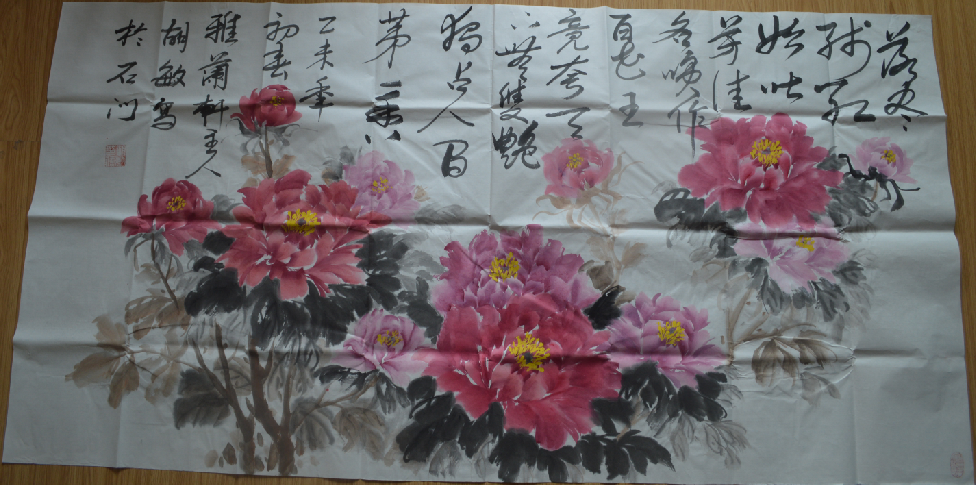 落尽
残红
始吐
芳佳
名唤作
百花王
竞夸天
下无双艳
独占人间
第一香
乙未年
初春
雅蘭轩主人
胡敏写
於石门